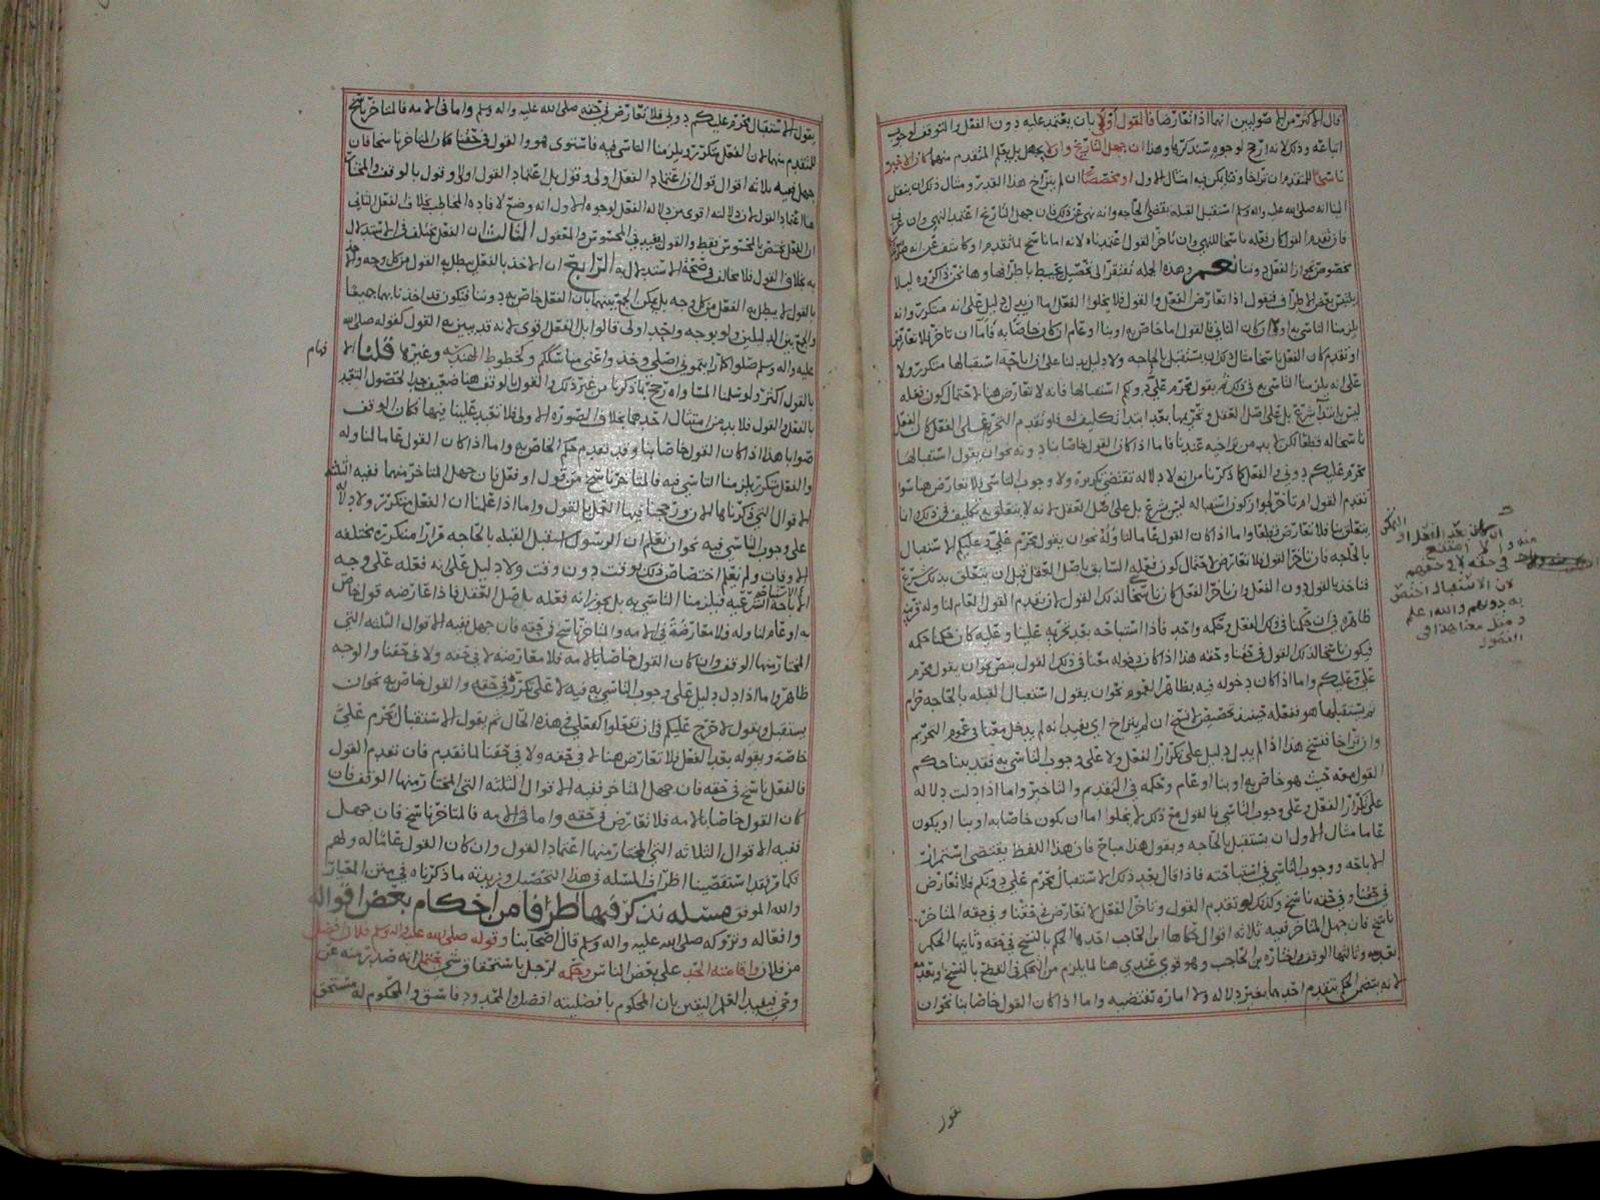 قال الاكثر من الاصوليين انهما اذا تعارضا فالقول اولى بان يعتمد عليه دون الفعل والتوقف لوجوب
اتباعه وذلك لانه ارجح لوجوه سنذكرها وهذا ان جهل التاريخ وان لا يجهل بل يعلم المتقدم منهما كان الاخير
ناسخا للمتقدم ان تراخا وقتا يمكن فيه امتثال الاول او مخصصا ان لم يتراخ هذا القدر ومثال ذلك ان ينقل
الينا انه صلى الله عليه واله وسلم استقبل القبله بقضى الحاجه وانه نهى عن ذلك فان جهل التاريخ اعتمد النهي وان عرف
فان تقدم القول كان فعله ناسخا للنهي وان تاخر القول اعتمدناه لانه اما ناسخ لما تقدم او كاشف عن انه
مخصوص بجواز الفعل دوننا نعم وهذه الجمله تفتقر الى تحصيل يحيط باطرافها وها نحن ذاكروه ليلا
يلتبس بعض الاطراف فنقول اذا تعارض الفعل والقول فلا يخلوا الفعل اما ان يدل دليل على انه متكرر وانه
يلزمنا التاسي به او لا ان كان الثاني فالقول اما خاص به او بنا او عام ان كان خاصا به فاما ان تاخر فلا تعارض
او تقدم كان الفعل ناسخا مثال ذلك ان يستقبل بالحاجه ولا دليل يدلنا على ان اباحة استقبالها متكررة ولا
على انه يلزمنا التاسي به في ذلك ثم يقول محرم عليّ دونكم استقبالها فانه لا تعارض هنا لاحتمال كون فعله
ليس بابتدآ شرع بل على اصل العقل وتحريمها بعد ابتدا تكليف له فلو تقدم التحريم على الفعل كان الفعل
ناسخا له قطعا لكن لا بد من تراخيه عندنا فاما اذا كان القول خاصا بنا دونه نحو ان يقول استقبالها
محرم عليكم دوني والفعل كما ذكرنا من انه لا دلاله تقتضي تكريره ولا وجوب التاسي فلا تعارض هنا سوا
تقدم القول ام تاخر لجواز كون استقباله ليس بشرع بل على اصل العقل لانه لا يتعلق به تكليف في ذلك وانما
يتعلق بنا فلا تعارض قطعا واما اذا كان القول عاما لنا وله نحو ان يقول محرم عليّ وعليكم الاستقبال
بالحاجه فان تاخر القول فلا تعارض لاحتمال كون فعله السابق باصل العقل قبل ان يتعلق به ذلك شرع
فناخذ بالقول دون الفعل وان تاخر الفعل كان ناسخا لذلك القول لان تقدم القول العام لنا وله قرينة
ظاهره في ان حكمنا في ذلك الفعل وحكمه واحد فاذا استباحه بعد تحريمه علينا وعليه كان حكمنا حكمه
فيكون ناسخا لذلك القول في حقنا وحقه هذا اذا كان دخوله معنا في ذلك القول بنص نحو ان يقول محرم
عليّ وعليكم واما اذا كان دخوله فيه بظاهر العموم نحو ان يقول استقبال القبله بالحاجه حرام
ثم يستقبلها هو ففعله حينئذ تخصيص لا نسخ ان لم يتراخ اي يفيد انه لم يدخل معنا في عموم التحريم
وان تراخا فنسخ هذا اذا لم يدل دليل على تكرار الفعل ولا على وجوب التاسي به فقد بينا حكم
القول معه حيث هو خاص به او بنا او عام وحكمه في التقديم والتاخير واما اذا دلت دلاله
على تكرار الفعل وعلى وجوب التاسي به فالقول مع ذلك لا يخلوا اما ان يكون خاصا به او بنا او يكون
عاما مثال الاول ان يستقبل بالحاجه ويقول هذا مباح فان هذا اللفظ يقتضي استمرار
الاباحه ووجوب التاسي في استباحته فاذا قال بعد ذلك الاستقبال محرم عليّ دونكم فلا تعارض
في حقنا وفي حقه ناسخ وكذلك لو تقدم القول وتاخر الفعل لا تعارض في حقنا وفي حقه المتاخر
ناسخ فان جهل المتاخر ففيه ثلاثه اقوال حكاها ابن الحاجب احدها الحكم بالنسخ في حقه وثانيها الحكم
بعدمه وثالثها الوقف واختاره بن الحاجب وهو قوي عندي هنا لما يلزم من التحكم في القطع بالنسخ او بعدمه
لانه يتضمن الحكم بتقدم احدهما بغير دلاله ولا اماره تقتضيه واما اذا كان القول خاصا بنا نحو ان
منه والا امتنع
في حقه لا في حقهم
لان الاستقبال اختص
به دونهم والله اعلم
ومثل هذا في
الفصول
يقول الاستقبال محرم عليكم دوني فلا تعارض في حقه صلى الله عليه واله وسلم واما في الامه فالمتاخر ناسخ
للمتقدم منهما لان الفعل متكرر ويلزمنا التاسي فيه فاستوى هو والقول في حقنا فكان المتاخر ناسخا فان
جهل ففيه ثلاثه اقوال قول ان اعتماد الفعل اولى وقول بل اعتماد القول اولى وقول بالوقف والمختار
هنا اعتماد القول لان دلالته اقوى من دلاله الفعل لوجوه الاول انه وضع لافاده المخاطب بخلاف الفعل الثاني
ان الفعل يختص بالمحسوس فقط والقول يفيد في المحسوس والمعقول الثالث ان الفعل مختلف في الاستدلال
به بخلاف القول فلا مخالف في صحة الاستدلال به الرابع ان الاخذ بالفعل يبطل به القول من كل وجه والاخذ
بالقول لا يبطل به الفعل من كل وجه بل يمكن الجمع بينهما بان الفعل خاص به دوننا فنكون قد اخذنا بهما جميعا
والجمع بين الدليلين ولو بوجه واحد اولى قالوا بل الفعل اقوى لانه قد يبين به القول كقوله صلى الله
عليه واله وسلم صلوا كما رايتموني اصلي وخذوا عني مناسككم وكخطوط الهندسه وغيرها قلنا
بالقول اكثر ولو سلمنا المساواه رجح بما ذكرنا من غير ذلك والقول بالوقف هنا ضعيف جدا لحصول التعبد
بالفعل والقول فلا بد من امتثال احدهما بخلاف الصوره الاولى فلا تعبد علينا فيها فكان الوقف
صوابا هذا اذا كان القول خاصا بنا وقد تقدم حكم الخاص به واما اذا كان القول عاما لنا وله
والفعل متكرر يلزمنا التاسي فيه فالمتاخر ناسخ من قول او فعل فان جهل المتاخر منهما ففيه الثلثه
الاقوال التي ذكرناها الان ورجحنا فيها العمل بالقول واما اذا علمنا ان الفعل متكرر ولا دلاله
على وجوب التاسي فيه نحو ان نعلم ان الرسول استقبل القبله بالحاجه مرارا متكرره مختلفه
الاوقات ولم نعلم اختصاص ذلك بوقت دون وقت ولا دليل على انه فعله على وجه
الاباحه الشرعيه فيلزمنا التاسي به بل يجوز انه فعله باصل العقل فاذا عارضه قول خاص
به او عام لنا وله فلا معارضة في الامه والمتاخر ناسخ في حقه فان جهل ففيه الاقوال الثلثه التي
المختار منها الوقف وان كان القول خاصا بالامه فلا معارضه لا في حقه ولا في حقنا والوجه
ظاهر واما اذا دل دليل على وجوب التاسي به فيه لا على تكرره في حقه والقول خاص به نحو ان
يستقبل ويقول لا حرج عليكم في ان تفعلوا كفعلي في هذه الحال ثم يقول الاستقبال محرم عليّ
خاصه ويقوله بعد الفعل فلا تعارض هنا لا في حقه ولا في حقنا لما تقدم فان تقدم القول
فالفعل ناسخ في حقه فان جهل المتاخر ففيه الاقوال الثلثه التي المختار منها الوقف فان
كان القول خاصا بالامه فلا تعارض في حقه واما في الامه فالمتاخر ناسخ فان جهل
ففيه الاقوال الثلاثه التي المختار منها اعتماد القول وان كان القول عاما له ولهم
فكما مر فقد استقصينا اطراف المسله في هذا التحصيل وزبدته ما ذكرناه في متن المعيار
والله الموفق مسله نذكر فيها طرفا من احكام بعض اقواله
وافعاله وتروكه صلى الله عليه واله وسلم قال اصحابنا وقوله صلى الله عليه واله وسلم فلان افضل
من فلان واقامته الحد على بعض الناس وحكمه لرجل باستحقاق شي يحتمل انه صدر منه عن
وحي فيفيد العلم اليقين بان المحكوم بافضليته افضل والمحدود فاسق والمحكوم له مستحق